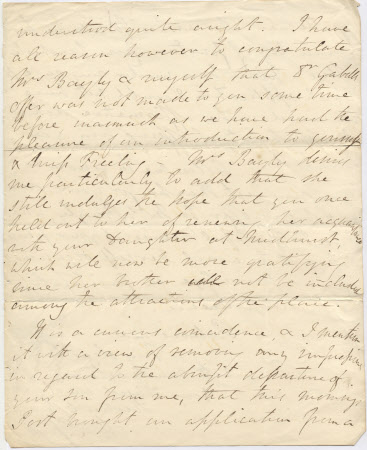 understood quite aright. I have
all reason however to congratulate
Mrs Bayly & myself that Dr Gabells
offer was not made to you some time
before inasmuch as we have had the
pleasure of an introduction to yourself
& Miss Freeling - Mrs Bayly desires
me particularly to add that she
still indulges the hope that you once
held out to her of renewing her acquaintance
with your Daughter at Midhurst,
which will now be more gratifying
since her brother will not be included
among the attractions of the place.
It is a curious coincidence, & I mention
it with a view of removing any
in regard to the abrupt departure of
your son from me, that this mornings
Post brought an application from a